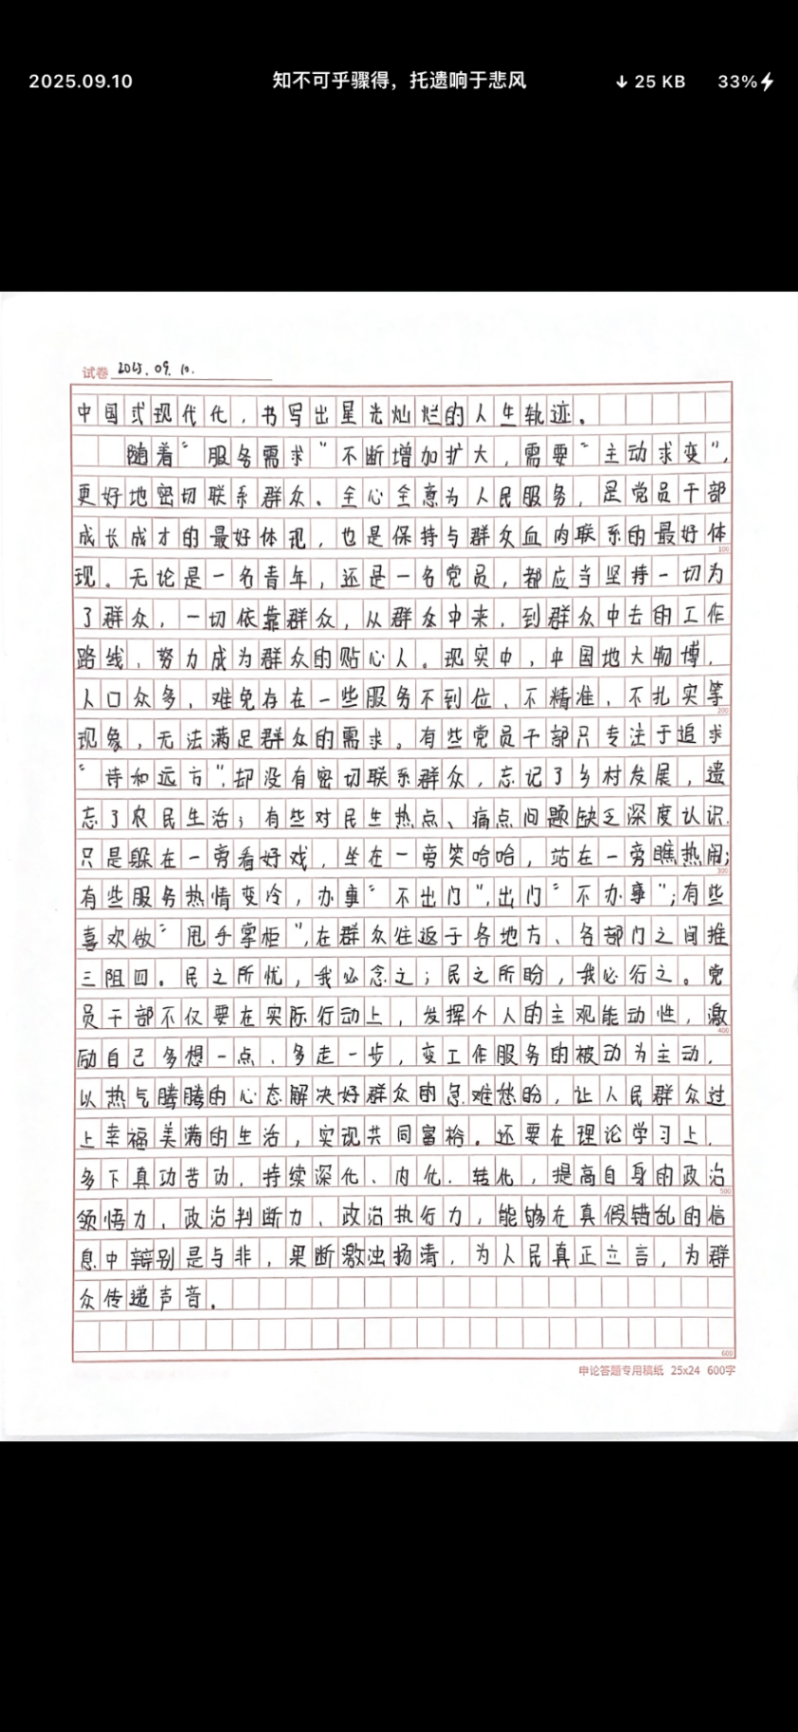 2025.09.10 知不可乎骤得，托遗响于悲风 ↓ 25 KB 33%
试卷 2025.09.10.
中国式现代化，书写出星光灿烂的人生轨迹。
随着“服务需求”不断增加扩大，需要“主动求变”，
更好地密切联系群众、全心全意为人民服务，是党员干部
成长成才的最好体现，也是保持与群众血肉联系的最好体
100
现。无论是一名青年，还是一名党员，都应当坚持一切为
了群众，一切依靠群众，从群众中来，到群众中去的工作
路线，努力成为群众的贴心人。现实中，中国地大物博，
人口众多，难免存在一些服务不到位、不精准、不扎实等
200
现象，无法满足群众的需求。有些党员干部只专注于追求
“诗和远方”，却没有密切联系群众，忘记了乡村发展，遗
忘了农民生活；有些对民生热点、痛点问题缺乏深度认识，
只是躲在一旁看好戏，坐在一旁笑哈哈，站在一旁瞧热闹；
300
有些服务热情变冷，办事“不出门”，出门“不办事”；有些
喜欢做“甩手掌柜”，在群众往返于各地方、各部门之间推
三阻四。民之所忧，我必念之；民之所盼，我必行之。党
员干部不仅要在实际行动上，发挥个人的主观能动性，激
400
励自己多想一点、多走一步，变工作服务的被动为主动，
以热气腾腾的心态解决好群众的急难愁盼，让人民群众过
上幸福美满的生活，实现共同富裕。还要在理论学习上，
多下真功苦功，持续深化、内化、转化，提高自身的政治
500
领悟力、政治判断力、政治执行力，能够在真假错乱的信
息中辩别是与非，果断激浊扬清，为人民真正立言，为群
众传递声音。
600
申论答题专用稿纸 25x24 600字